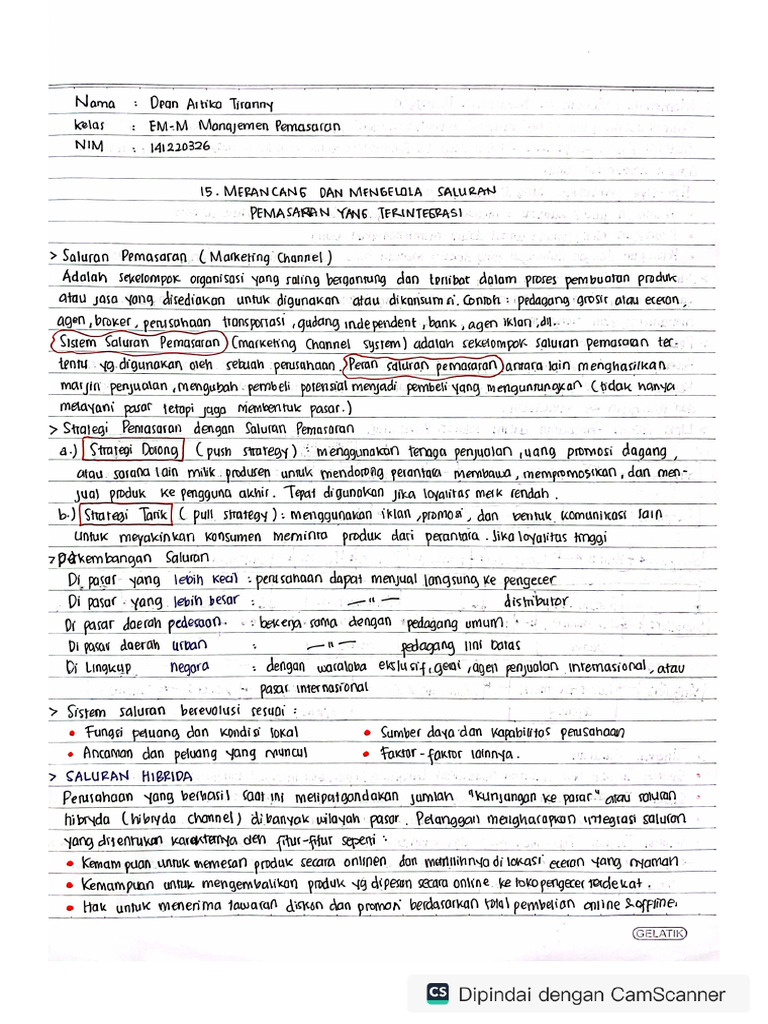 Nama : Dean Altika Tiranny
Kelas : EM-M Manajemen Pemasaran
NIM : 141220326
15. MERANCANG DAN MENGELOLA SALURAN
PEMASARAN YANG TERINTEGRASI
> Saluran Pemasaran (Marketing Channel)
Adalah sekelompok organisasi yang saling bergantung dan terlibat dalam proses pembuatan produk
atau jasa yang disediakan untuk digunakan atau dikonsumsi. Contoh : pedagang grosir atau eceran,
agen, broker, perusahaan transportasi, gudang independent, bank, agen iklan, dll.
Sistem Saluran Pemasaran (marketing channel system) adalah sekelompok saluran pemasaran ter-
tentu yg digunakan oleh sebuah perusahaan. Peran saluran pemasaran antara lain menghasilkan
marjin penjualan, mengubah pembeli potensial menjadi pembeli yang menguntungkan (tidak hanya
melayani pasar tetapi juga membentuk pasar.)
> Strategi Pemasaran dengan Saluran Pemasaran
a.) Strategi Dorong (push strategy) : menggunakan tenaga penjualan, uang promosi dagang,
atau sarana lain milik produsen untuk mendorong perantara membawa, mempromosikan, dan men-
jual produk ke pengguna akhir. Tepat digunakan jika loyalitas merk rendah.
b.) Strategi Tarik (pull strategy) : menggunakan iklan, promosi, dan bentuk komunikasi lain
untuk meyakinkan konsumen meminta produk dari perantara. Jika loyalitas tinggi
> Perkembangan Saluran
Di pasar yang lebih kecil : perusahaan dapat menjual langsung ke pengecer
Di pasar yang lebih besar : —"— distributor
Di pasar daerah pedesaan : bekerja sama dengan pedagang umum
Di pasar daerah urban : —"— pedagang lini batas
Di Lingkup negara : dengan waralaba eksklusif, gerai, agen penjualan internasional, atau
pasar internasional
> Sistem saluran berevolusi sesuai :
• Fungsi peluang dan kondisi lokal • Sumber daya dan kapabilitas perusahaan
• Ancaman dan peluang yang muncul • Faktor-faktor lainnya.
> SALURAN HIBRIDA
Perusahaan yang berhasil saat ini melipatgandakan jumlah "kunjangan ke pasar" atau saluran
hibryda (hibryda channel) dibanyak wilayah pasar. Pelanggan mengharapkan integrasi saluran
yang ditentukan karakternya oleh fitur-fitur seperti :
• Kemampuan untuk memesan produk secara onlinen dan memilihnya di lokasi eceran yang nyaman
• Kemampuan untuk mengembalikan produk yg dipesan secara online ke toko pengecer terdekat.
• Hak untuk menerima tawaran diskon dan promosi berdasarkan total pembelian online & offline.
GELATIK
CS Dipindai dengan CamScanner